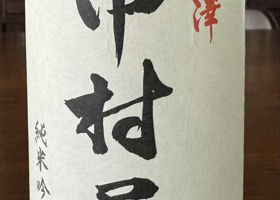 津
中村屋
純米吟